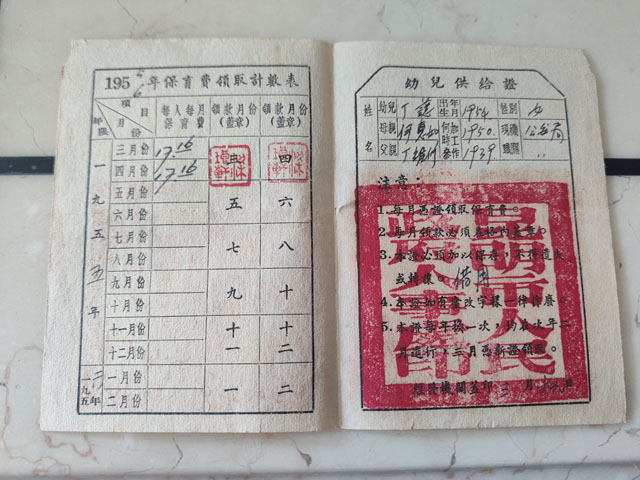 195 年保育費領取計數表
項目
月份
年區
每人每月保育費
領款月份(蓋章)
領款月份(蓋章)
一九五五年
三月份 17.16 三 四
四月份 17.16
五月份 五 六
六月份
七月份 七 八
八月份
九月份 九 十
十月份
十一月份 十一 十二
十二月份
一九五六年
一月份 一 二
二月份
幼兒供給證
姓名
幼兒 丁 出生年月 1954 性別 女
母親 何 何時參加工作 1950 現機職關 公安局
父親 丁 1939 〃
注意:
1.每月憑證領取保育費。
2.每月領款必須在格內蓋章。
3.本證必須加以保存,不得遺失
或轉讓。借用
4.本證如有塗改字樣一律作廢。
5.本證每年換一次,均在次年二
月進行,三月憑新證領取。
昆明市人民政府